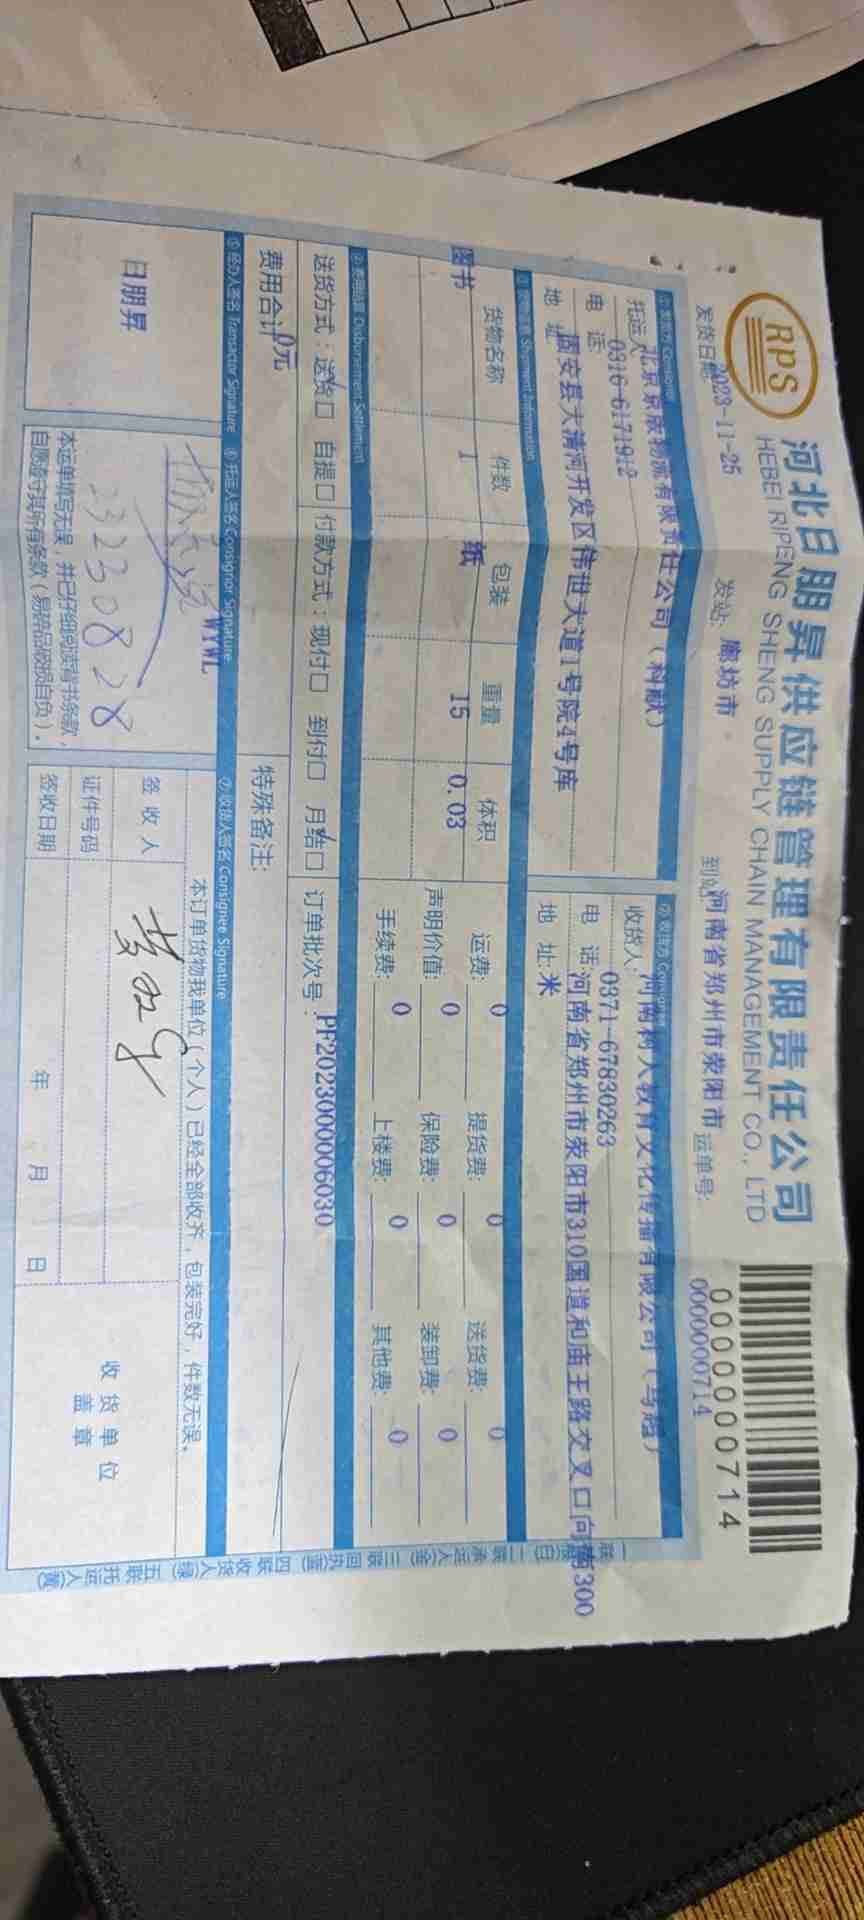 RPS
河北日朋昇供应链管理有限责任公司
HEBEI RIPENG SHENG SUPPLY CHAIN MANAGEMENT CO., LTD
00000000714
发货日期 2023-11-25 发站: 廊坊市 到站 河南省郑州市荥阳市 运单号: 0000000714
① 发货方 Consignor
托运人 北京京版物流有限责任公司(科献)
电 话 0316-6171912
地 址 固安县大清河开发区伟世大道1号院4号库
② 收货方 Consignee
收货人: 河南树人教育文化传播有限公司(马超)
电 话: 0371-67830263
河南省郑州市荥阳市310国道和庙王路交叉口向南300
地 址 米
③ 货物信息 Shipment Information
货物名称 件数 包装 重量 体积
图书 1 纸 15 0.03
运费: 0 提货费: 0 送货费: 0
声明价值: 0 保险费: 0 装卸费: 0
手续费: 0 上楼费: 0 其他费: 0
④ 费用结算 Disbursement Settlement
送货方式:送货☑ 自提□ 付款方式:现付□ 到付□ 月结☑ 订单批次号: PF20230000006030
费用合计 0元
特殊备注:
⑤ 经办人签名 Transactor Signature ⑥ 托运人签名 Consignor Signature ⑦ 收货人签名 Consignee Signature
日朋昇
WYWL
23230828
本运单填写无误,并已仔细阅读背书条款,
自愿遵守其所有条款(易碎品破损自负)。
本订单货物我单位(个人)已经全部收齐,包装完好,件数无误。
签 收 人
证件号码
签收日期 年 月 日
收 货 单 位
盖 章
一联存根(白) 二联承运人(金) 三联回执(蓝) 四联收货人(绿) 五联托运人(黄)